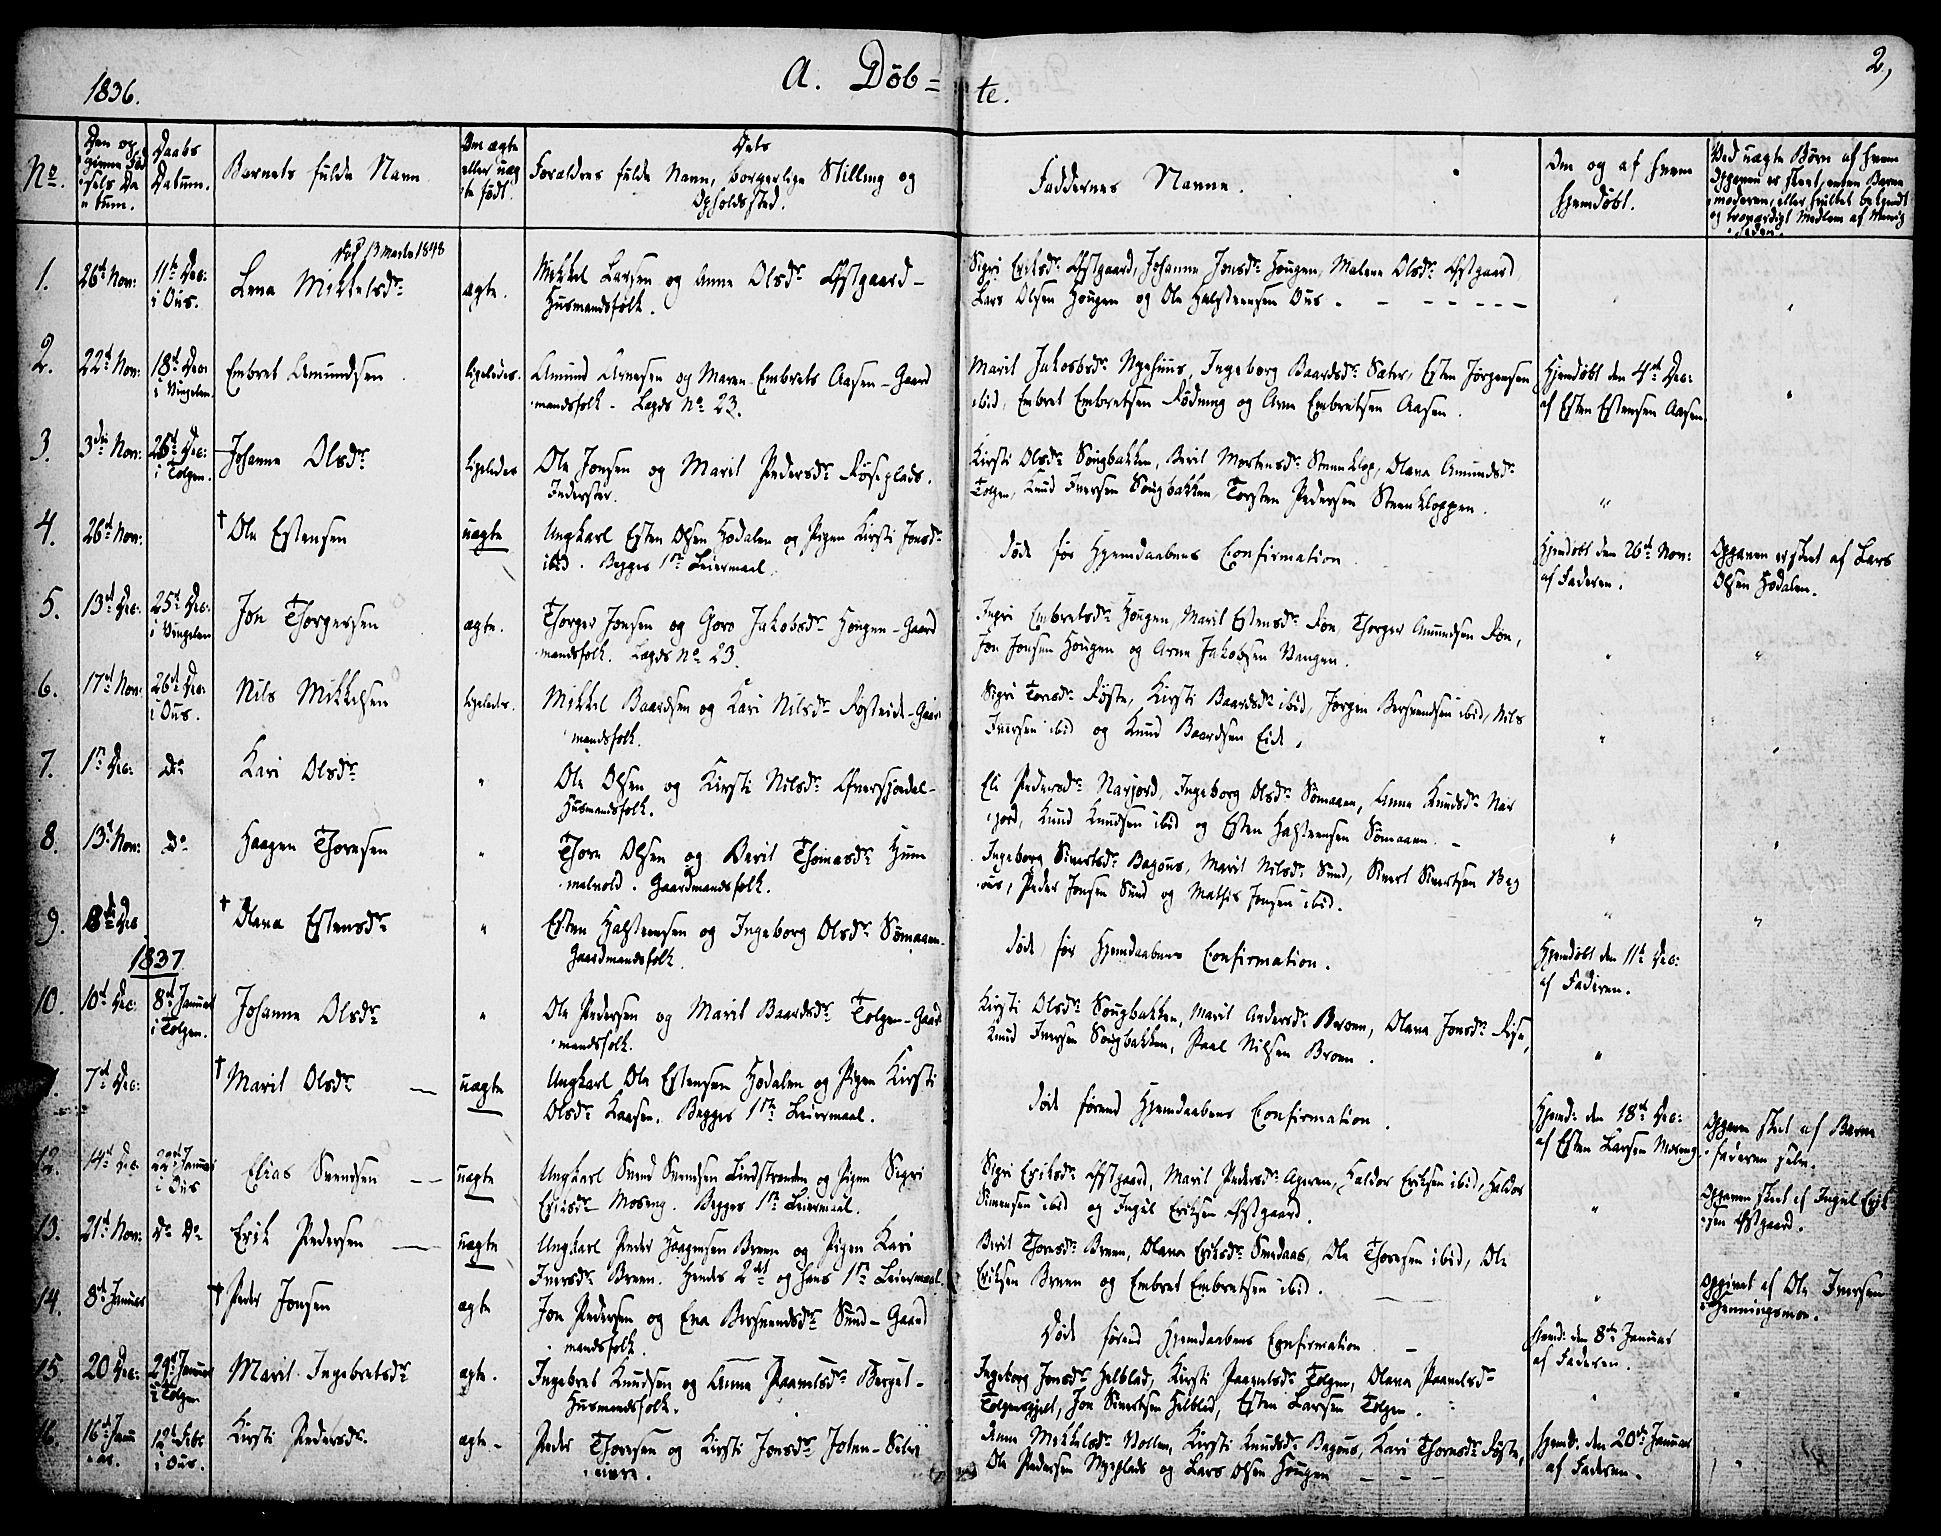 1836.
A. Döb=
te.
2,
No.
Den og
Daabs
Datum.
Barnets fulde Navn
Om ægte
eller uæg
te født.
Dets
Forældres fulde Navn, borgerlige Stilling og
Opholdssted.
Faddernes Navne.
Om og af hvem
hjemdöbt.
Ved uægte Børn af hvem
Opgaven er skeet, enten Barne
moderen, eller hvilket bekjendt
og troværdigt Medlem af Menig
heden.
1.
26de Nov:
11te Dec:
i Ous.
død 13 marts 1848
Lena Mikkelsdr
ægte.
Mikkel Larsen og Anne Olsdr Østgaard –
Husmandsfolk.
Sigri Eriksdr Østgaard, Johanne Jonsdr Hougen, Malene Olsdr Østgaard
Lars Olsen Hougen og Ole Halsteensen Ous.
2.
22d Nov:
18d Dec:
i Vingelen
Embret Amundsen
ligeledes.
Amund Arnesen og Maren Embrets Aasen – Gaard
mandsfolk – Lægds No 23.
Marit Jakobsdr Nyehuus, Ingeborg Baardsdr Sæter, Esten Jörgensen
ibid, Embret Embretsen Rödning og Arne Embretsen Aasen.
Hjemdöbt den 4de Dec:
af Esten Estensen Aasen
3.
3die Nov:
26d Dec:
i Tolgen.
Johanne Olsdr
ligeledes
Ole Jonsen og Marit Pedersdr Röseplads.
Inderster.
Kirsti Olsdr Sougbakken, Berit Mortensdr Steenklop, Olava Amundsdr
Tolgen, Knud Iversen Sougbakken, Torsten Pedersen Steenkloppen.
4.
26de Nov:
† Ole Estensen
uægte
Ungkarl Esten Olsen Hodalen og Pigen Kirsti Jonsdr
ibid. Begges 1ste Leiermaal.
döde för Hjemdaabens Confirmation
Hjemdöbt den 26de Nov:
af Faderen.
Opgaven er skeet af Lars
Olsen Hodalen.
5.
13d Dec:
25d Dec:
i Vingelen
Jon Thorgersen
ægte.
Thorger Jonsen og Goro Jakobsdr Hougen – Gaard
mandsfolk. Lægds No 23.
Ingri Embretsdr Hougen, Marit Estensdr Röe, Thorger Amundsen Röe,
Jon Jonsen Hougen og Arne Jakobsen Vangen.
6.
17d Nov:
26d Dec:
i Ous.
Nils Mikkelsen
ligeledes.
Mikkel Baardsen og Kari Nilsdr Rösteide – Gaard
mandsfolk.
Sigri Tordr Röste, Kirsti Baardsdr ibid, Jörgen Bersvendsen ibid, Nils
Iversen ibid og Knud Baardsen Eide,
7.
1ste Dec:
Do
Kari Olsdr
Ole Olsen og Kirsti Nilsdr Översjødal –
Husmandsfolk.
Eli Pedersdr Narjord, Ingeborg Olsdr Sömaaen, Anne Knudsdr Nar
jord, Knud Knudsen ibid og Esten Halsteensen Sömaaen.
8.
13d Nov:
Do
Haagen Thoresen
Thore Olsen og Berit Thomasdr Hum
melvold. Gaardmandsfolk.
Ingeborg Sivertsdr Bagous, Marit Nilsdr Sund, Sivert Sivertsen Bag
ous, Peder Jonsen Sund og Mathis Jonsen ibid.
9.
8de Dec
† Olava Estensdr
Esten Halsteensen og Ingeborg Olsdr Sömaaen –
Gaardmandsfolk.
döde för Hjemdaabens Confirmation.
Hjemdöbt den 11te Dec:
af Faderen.
1837
10.
10de Dec:
8de Januar
i Tolgen.
Johanne Olsdr
Ole Pedersen og Marit Baardsdr Tolgen – Gaard
mandsfolk.
Kirsti Olsdr Sougbakken, Marit Andersdr Broen, Olava Jonsdr Röse,
Knud Iversen Sougbakken, Paal Nilsen Broen.
7d Dec:
† Marit Olsdr
uægte
Ungkarl Ole Estensen Hodalen og Pigen Kirsti
Olsdr Kaasen. Begges 1ste Leiermaal.
döde förend Hjemdaabens Confirmation.
Hjemd: den 18de Dec:
af Esten Larsen Moseng
Opgaven skeet af Barne
faderen selv.
12.
14d Dec:
22d Januar
i Ous
Elias Svendsen
uægte
Ungkarl Svend Svendsen Lindstranden og Pigen Sigri
Eriksdr Moseng. Begges 1ste Leiermaal.
Sigri Eriksdr Østgaard, Marit Pedersdr Ageren, Haldor Eriksen ibid, Haldor
Simensen ibid og Ingul Eriksen Østgaard.
Opgaven skeet af Ingul Erik
sen Østgaard.
13.
21d Nov:
Do Do
Erik Pedersen
uægte
Ungkarl Peder Haagensen Breen og Pigen Kari
Iversdr Breen. Hendes 2det og hans 1ste Leiermaal.
Berit Thoresdr Breen, Olava Eriksdr Smedaas, Ole Thoresen ibid, Ole
Eriksen Breen og Embret Embretsen ibid.
Opgivet af Ole Iversen
Henningsmoe.
14.
8de Januar
† Peder Jonsen
ægte
Jon Pedersen og Eva Bersvendsdr Sund – Gaard
mandsfolk.
Döde förend Hjemdaabens Confirmation
Hjemd: den 8de Januar
af Faderen.
15.
20 Dec:
29d Januar
i Tolgen
Marit Ingebretsdr
ægte.
Ingebret Knudsen og Anne Paavelsdr Berget –
Husmandsfolk.
Ingeborg Jonsdr Helblad, Kirsti Paavelsdr Tolgen, Olava Paavelsdr
Tolgensgjelt, Jon Sivertsen Helblad, Esten Larsen Tolgen.
16.
16d Janu
ar.
12d Febr
i Ous.
Kirsti Pedersdr
ægte –
Peder Thoresen og Kirsti Jonsdr Joten – Selv
eiere.
Anne Mikkelsdr Vollen, Kirsti Knudsdr Bagous, Kari Thoresdr Röste,
Ole Pedersen Nyeplads og Lars Olsen Hougen
Hjemd: den 20de Januar
af Faderen.